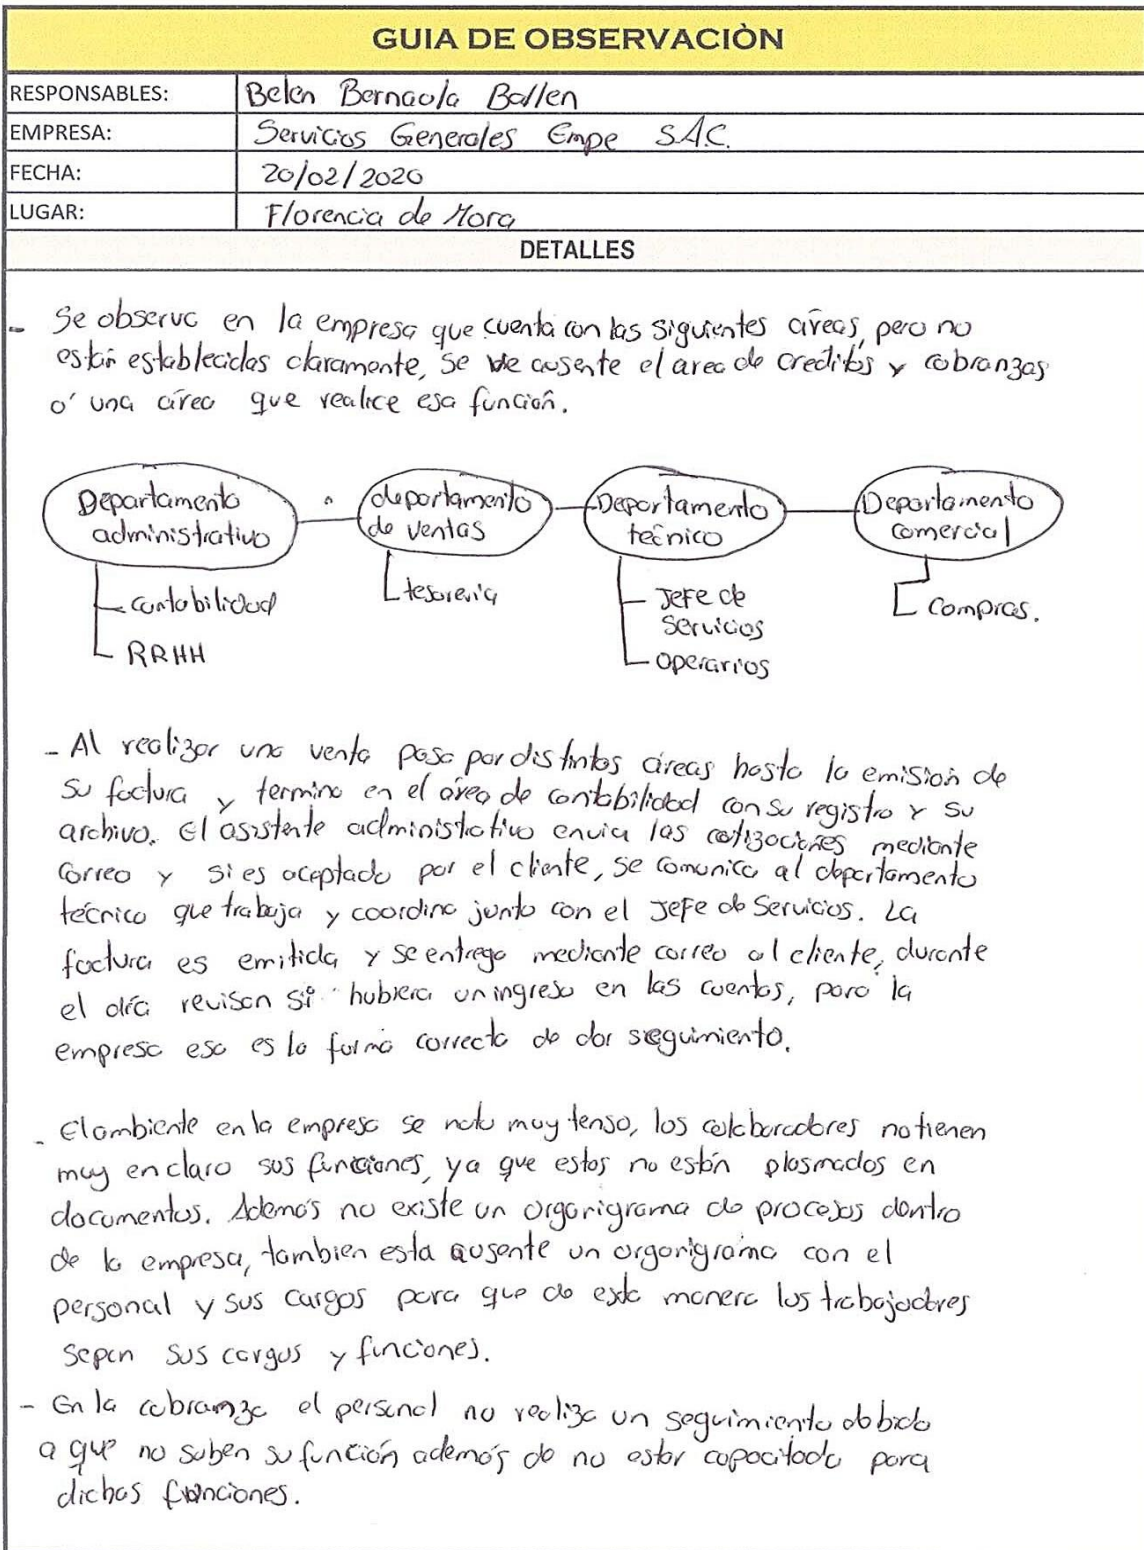 GUIA DE OBSERVACIÒN
RESPONSABLES: Belen Bernaola Ballen
EMPRESA: Servicios Generales Empe S.A.C.
FECHA: 20/02/2020
LUGAR: Florencia de Mora
DETALLES
- Se observa en la empresa que cuenta con las siguientes áreas, pero no
están establecidas claramente, se ve ausente el area de creditos y cobranzas
o' una área que realice esa función.
Departamento administrativo
departamento de ventas
Departamento técnico
Departamento comercial
contabilidad
RRHH
tesoreria
Jefe de Servicios
operarios
Compras.
- Al realizar una venta pasa por distintas áreas hasta la emisión de
su factura y termina en el área de contabilidad con su registro y su
archivo. El asistente administrativo envia las cotizaciones mediante
correo y si es aceptado por el cliente, se comunica al departamento
técnico que trabaja y coordina junto con el Jefe de Servicios. La
factura es emitida y se entrega mediante correo al cliente, durante
el día revisan si hubiera un ingreso en las cuentas, para la
empresa esa es la forma correcta de dar seguimiento.
- El ambiente en la empresa se nota muy tenso, los colaboradores no tienen
muy en claro sus funciones, ya que estos no están plasmados en
documentos. Además no existe un organigrama de procesos dentro
de la empresa, tambien esta ausente un organigrama con el
personal y sus cargos para que de esta manera los trabajadores
sepan sus cargos y funciones.
- En la cobranza el personal no realiza un seguimiento debido
a que no saben su función además de no estar capacitado para
dichas funciones.